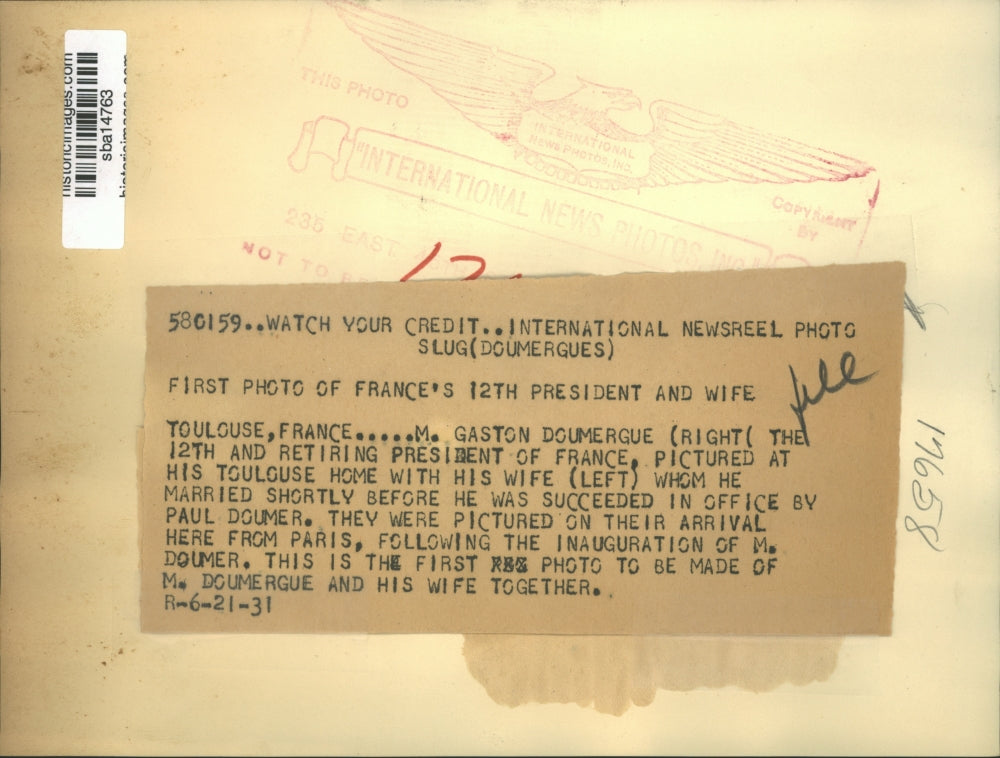 historicimages.com
sba14763
THIS PHOTO
INTERNATIONAL
NEWS PHOTOS, INC.
"INTERNATIONAL NEWS PHOTOS, INC."
COPYRIGHT
BY
235 EAST
NOT TO BE
580159..WATCH YOUR CREDIT..INTERNATIONAL NEWSREEL PHOTO
SLUG(DOUMERGUES)
FIRST PHOTO OF FRANCE'S 12TH PRESIDENT AND WIFE
TOULOUSE,FRANCE.....M. GASTON DOUMERGUE (RIGHT( THE
12TH AND RETIRING PRESIDENT OF FRANCE, PICTURED AT
HIS TOULOUSE HOME WITH HIS WIFE (LEFT) WHOM HE
MARRIED SHORTLY BEFORE HE WAS SUCCEEDED IN OFFICE BY
PAUL DOUMER. THEY WERE PICTURED ON THEIR ARRIVAL
HERE FROM PARIS, FOLLOWING THE INAUGURATION OF M.
DOUMER. THIS IS THE FIRST PHOTO TO BE MADE OF
M. DOUMERGUE AND HIS WIFE TOGETHER.
R-6-21-31